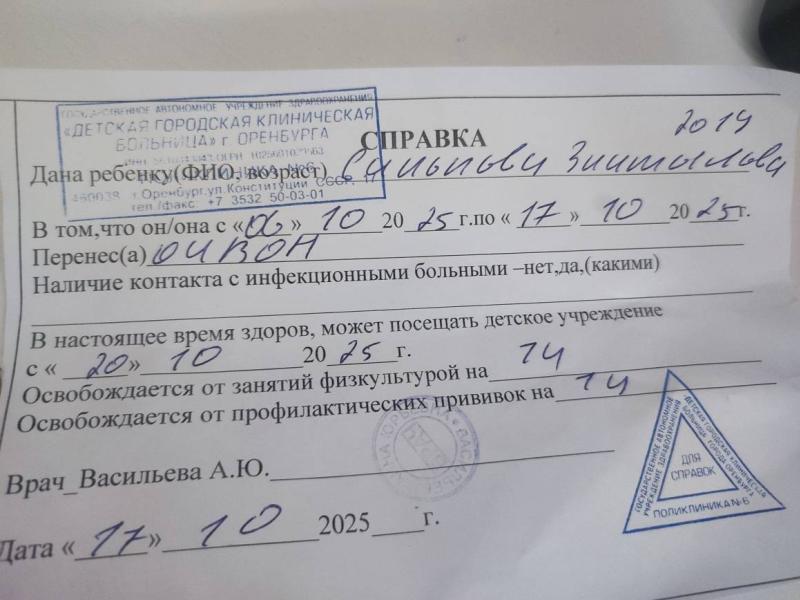 ГОСУДАРСТВЕННОЕ АВТОНОМНОЕ УЧРЕЖДЕНИЕ ЗДРАВООХРАНЕНИЯ
«ДЕТСКАЯ ГОРОДСКАЯ КЛИНИЧЕСКАЯ
БОЛЬНИЦА» г. ОРЕНБУРГА
г.Оренбург,ул.Конституции СССР, 17
тел./факс: +7 3532 50-03-01
СПРАВКА
2019
Дана ребенку(ФИО, возраст)
В том,что он/она с «06» 10 2025г.по «17» 10 2025г.
Перенес(а) ОРВОН
Наличие контакта с инфекционными больными –нет,да,(какими)
В настоящее время здоров, может посещать детское учреждение
с « 20 » 10 2025г.
Освобождается от занятий физкультурой на 14
Освобождается от профилактических прививок на 14
Врач_Васильева А.Ю.
ГОСУДАРСТВЕННОЕ АВТОНОМНОЕ
УЧРЕЖДЕНИЕ ЗДРАВООХРАНЕНИЯ
«ДЕТСКАЯ ГОРОДСКАЯ КЛИНИЧЕСКАЯ
БОЛЬНИЦА» ГОРОДА ОРЕНБУРГА
ДЛЯ
СПРАВОК
ПОЛИКЛИНИКА №6
Дата «17» 10 2025 г.